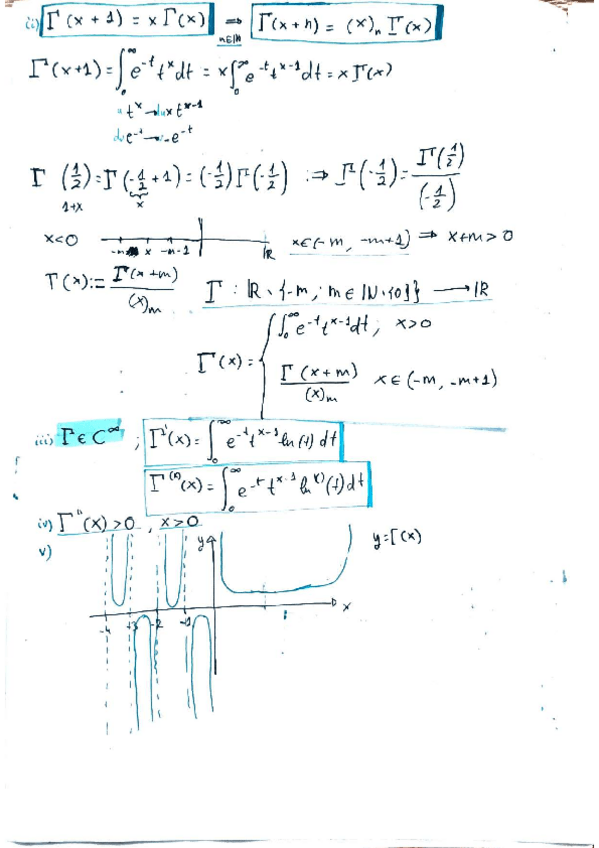 ii) Γ(x+1) = xΓ(x) ⇒ n∈ℕ Γ(x+n) = (x)ₙ Γ(x)
Γ(x+1) = ∫₀^∞ e^-t t^x dt = x∫₀^∞ e^-t t^x-1 dt = xΓ(x)
t^x → x t^x-1
e^-t → -e^-t
Γ(1/2) = Γ(-1/2 + 1) = (-1/2)Γ(-1/2) :⇒ Γ(-1/2) = Γ(1/2)/(-1/2)
1+x x
x<0 -m x -m-1 ℝ x∈(-m, -m+1) ⇒ x+m>0
Γ(x) := Γ(x+m)/(x)ₘ Γ : ℝ∖{-m ; m∈ℕ∪{0}} → ℝ
Γ(x) = { ∫₀^∞ e^-t t^x-1 dt ; x>0
Γ(x+m)/(x)ₘ x∈(-m, -m+1)
iii) Γ∈C^∞ ; Γ'(x) = ∫₀^∞ e^-t t^x-1 ln(t) dt
Γ^(k)(x) = ∫₀^∞ e^-t t^x-1 ln^(k)(t) dt
iv) Γ''(x) > 0 , x>0
v) y y=Γ(x)
-4 -3 -2 -1 1 x